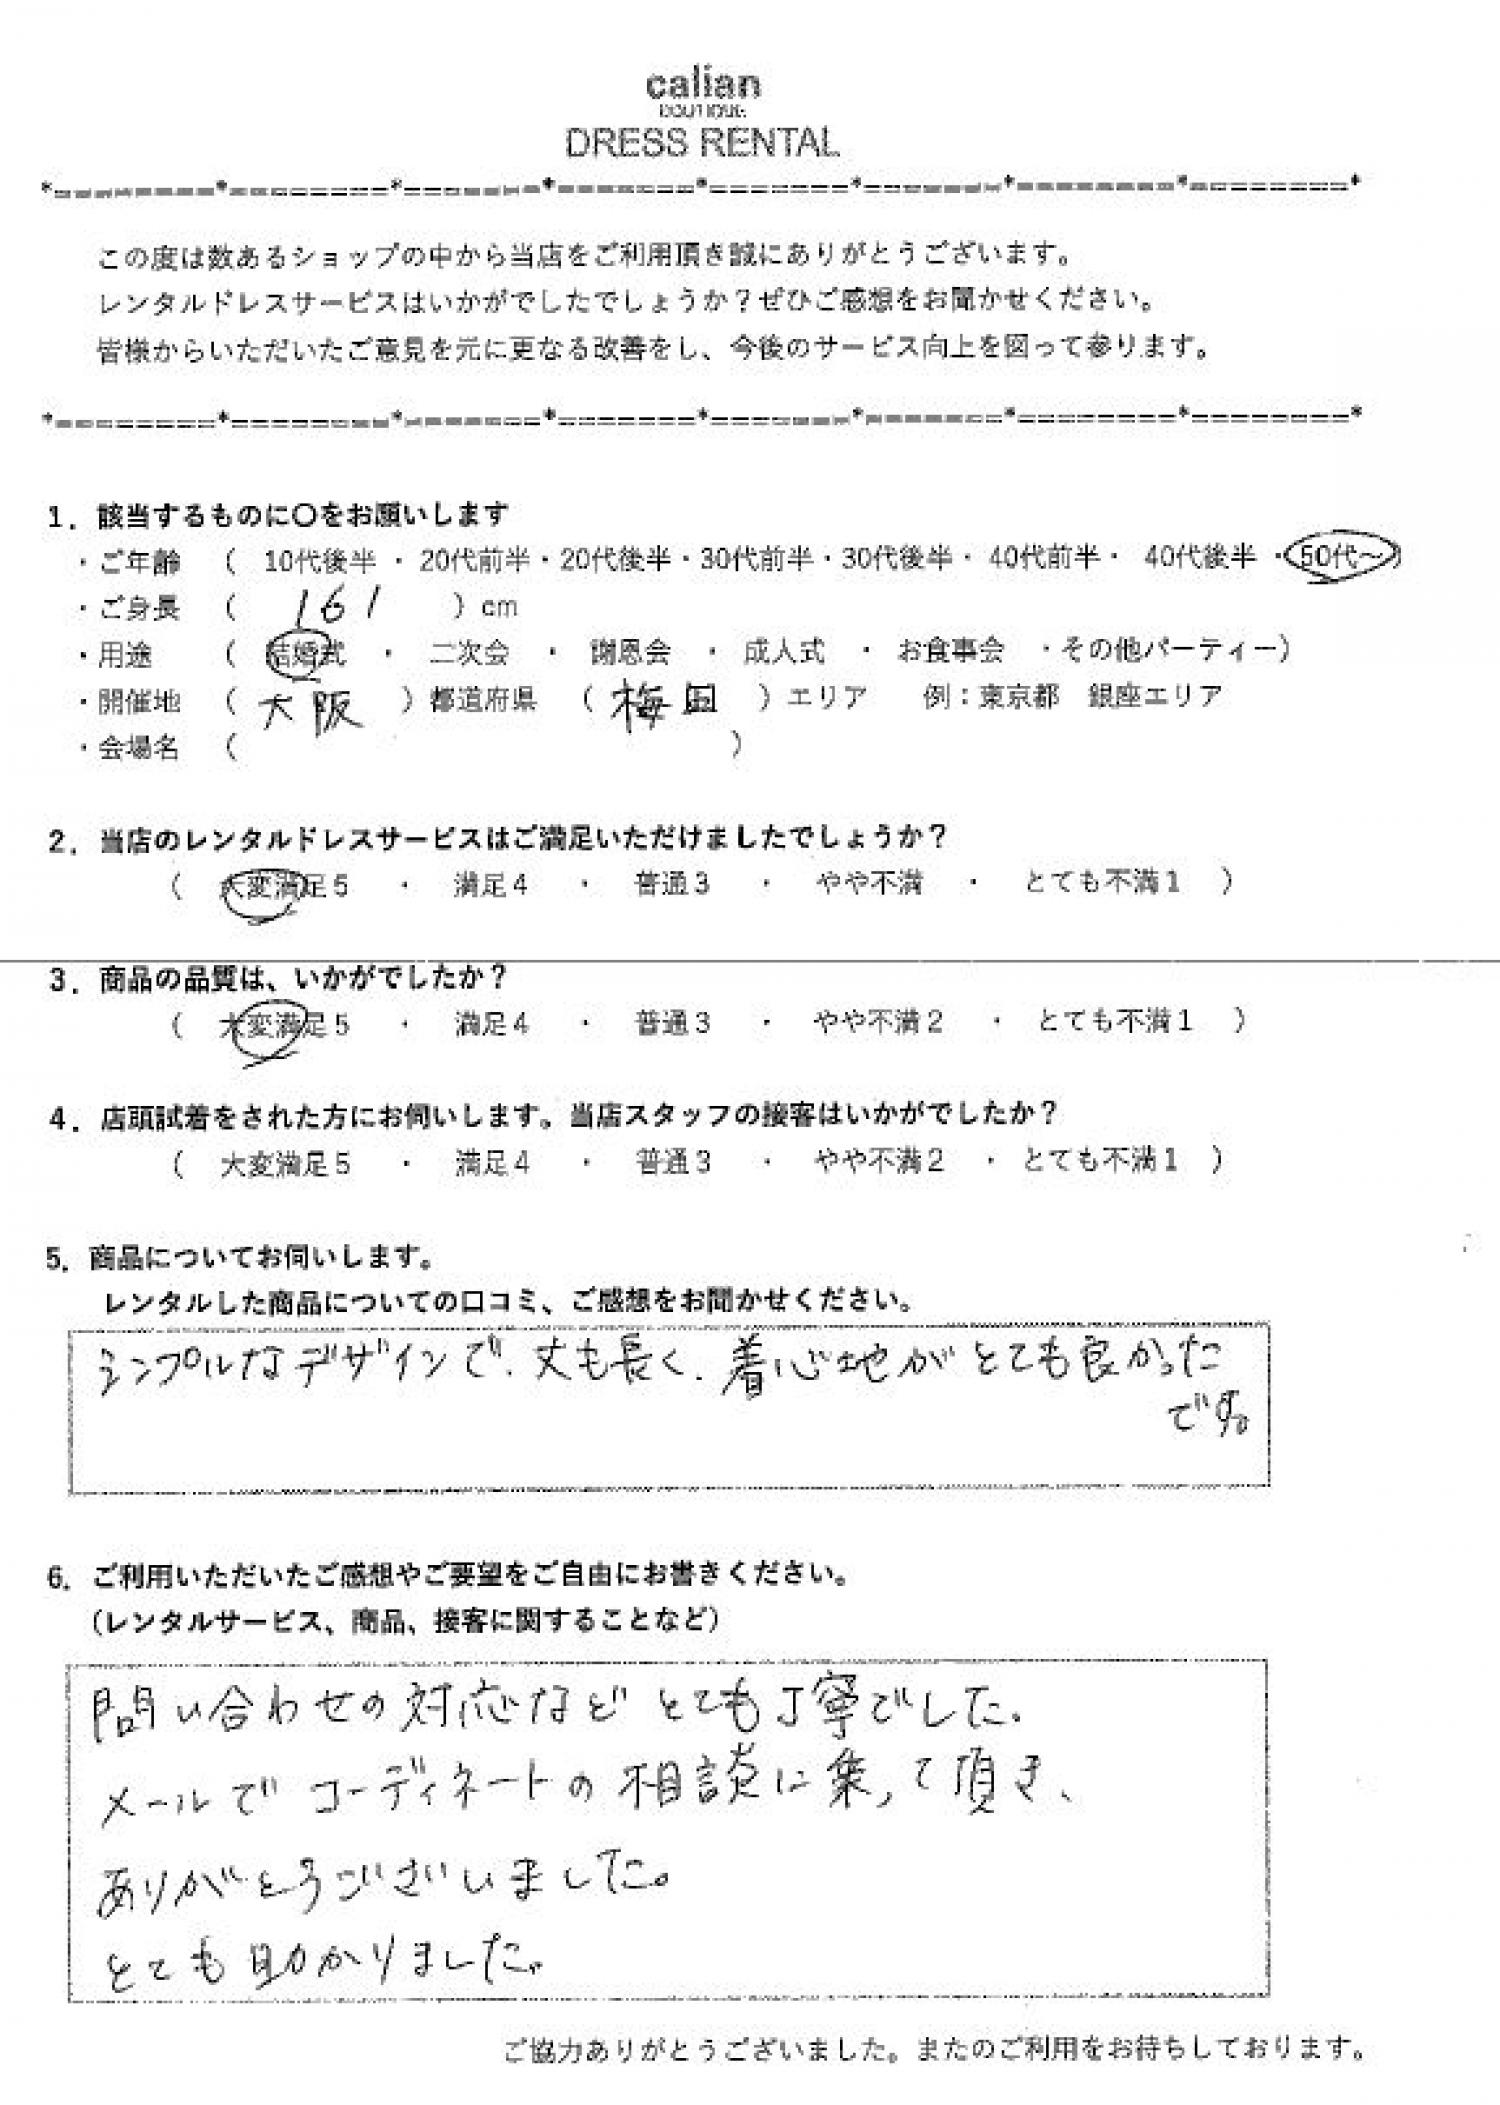 calian
BOUTIQUE
DRESS RENTAL
*========*========*=======*=======*=======*=======*========*========*
この度は数あるショップの中から当店をご利用頂き誠にありがとうございます。
レンタルドレスサービスはいかがでしたでしょうか？ぜひご感想をお聞かせください。
皆様からいただいたご意見を元に更なる改善をし、今後のサービス向上を図って参ります。
*========*========*=======*=======*=======*=======*========*========*
1．該当するものに〇をお願いします
・ご年齢 （ 10代後半 ・ 20代前半・20代後半・30代前半・30代後半・ 40代前半・ 40代後半 ・50代～）
・ご身長 （ 161 ）cm
・用途 （ 結婚式 ・ 二次会 ・ 謝恩会 ・ 成人式 ・ お食事会 ・その他パーティー）
・開催地 （ 大阪 ）都道府県 （ 梅田 ）エリア 例：東京都 銀座エリア
・会場名 （ ）
2．当店のレンタルドレスサービスはご満足いただけましたでしょうか？
（ 大変満足５ ・ 満足４ ・ 普通３ ・ やや不満 ・ とても不満１ ）
3．商品の品質は、いかがでしたか？
（ 大変満足５ ・ 満足４ ・ 普通３ ・ やや不満２ ・ とても不満１ ）
4．店頭試着をされた方にお伺いします。当店スタッフの接客はいかがでしたか？
（ 大変満足５ ・ 満足４ ・ 普通３ ・ やや不満２ ・ とても不満１ ）
5．商品についてお伺いします。
レンタルした商品についての口コミ、ご感想をお聞かせください。
シンプルなデザインで、丈も長く、着心地がとても良かった
です。
6．ご利用いただいたご感想やご要望をご自由にお書きください。
（レンタルサービス、商品、接客に関することなど）
問い合わせの対応など とても丁寧でした。
メールで コーディネートの相談に乗って頂き、
ありがとうございました。
とても助かりました。
ご協力ありがとうございました。またのご利用をお待ちしております。